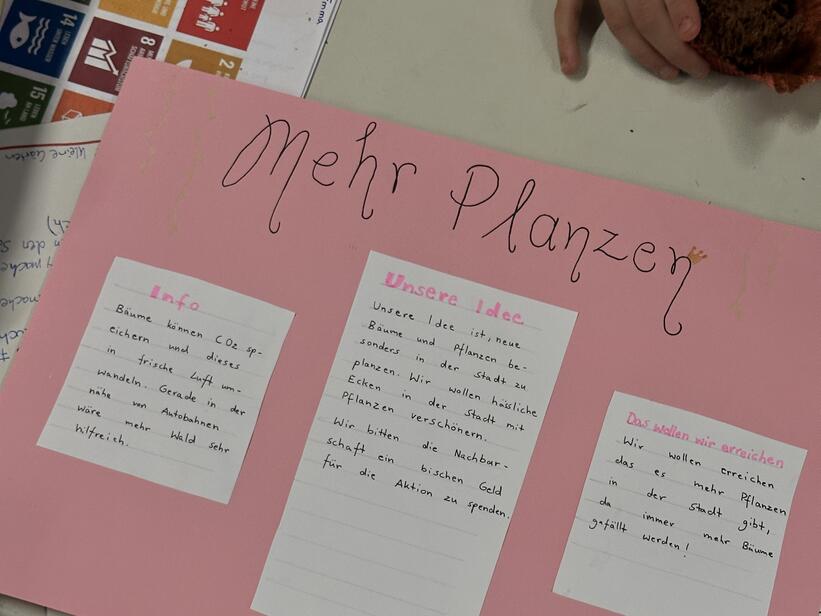 14 LEBEN UNTER WASSER
8
2
15 LEBEN AN LAND
Mehr Planzen
Info
Bäume können CO2 sp-
eichern und dieses
in frische Luft um-
wandeln. Gerade in der
nähe von Autobahnen
wäre mehr Wald sehr
hilfreich.
Unsere Idee
Unsere Idee ist, neue
Bäume und Pflanzen be-
sonders in der Stadt zu
planzen. Wir wollen hässliche
Ecken in der Stadt mit
Pflanzen verschönern.
Wir bitten die Nachbar-
schaft ein bischen Geld
für die Aktion zu spenden.
Das wollen wir erreichen
Wir wollen erreichen
das es mehr Pflanzen
in der Stadt gibt,
da immer mehr Bäume
gefällt werden!